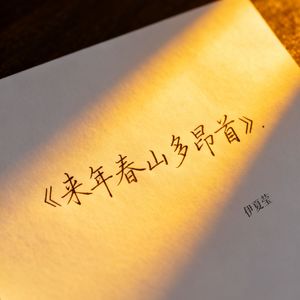 《来年春山多昂首》.
伊夏莹